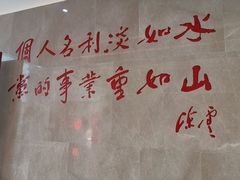 個人名利淡如水
黨的事業重如山
陈雲